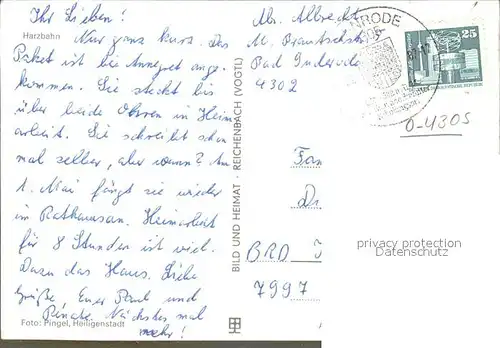 Ihr Lieben!
Harzbahn
Nur ganz kurz. Das
Paket ist bei Annegret ange-
kommen. Sie steckt bis
über beide Ohren in Heim
arbeit. Sie schreibt schon
mal selber, aber wann? Am
1. Mai fängt sie wieder
im Rathaus an. Heimarbeit
für 8 Stunden ist viel.
Dazu das Haus. Liebe
Grüße, Euer Paul und
Renate. Nächstes mal
mehr!
Foto: Pingel, Heiligenstadt
BILD UND HEIMAT · REICHENBACH (VOGTL)
Abs. Albrecht
Bad Suderode
4302
NRODE
25
O-4305
Fam
BRD
7997
privacy protection
Datenschutz